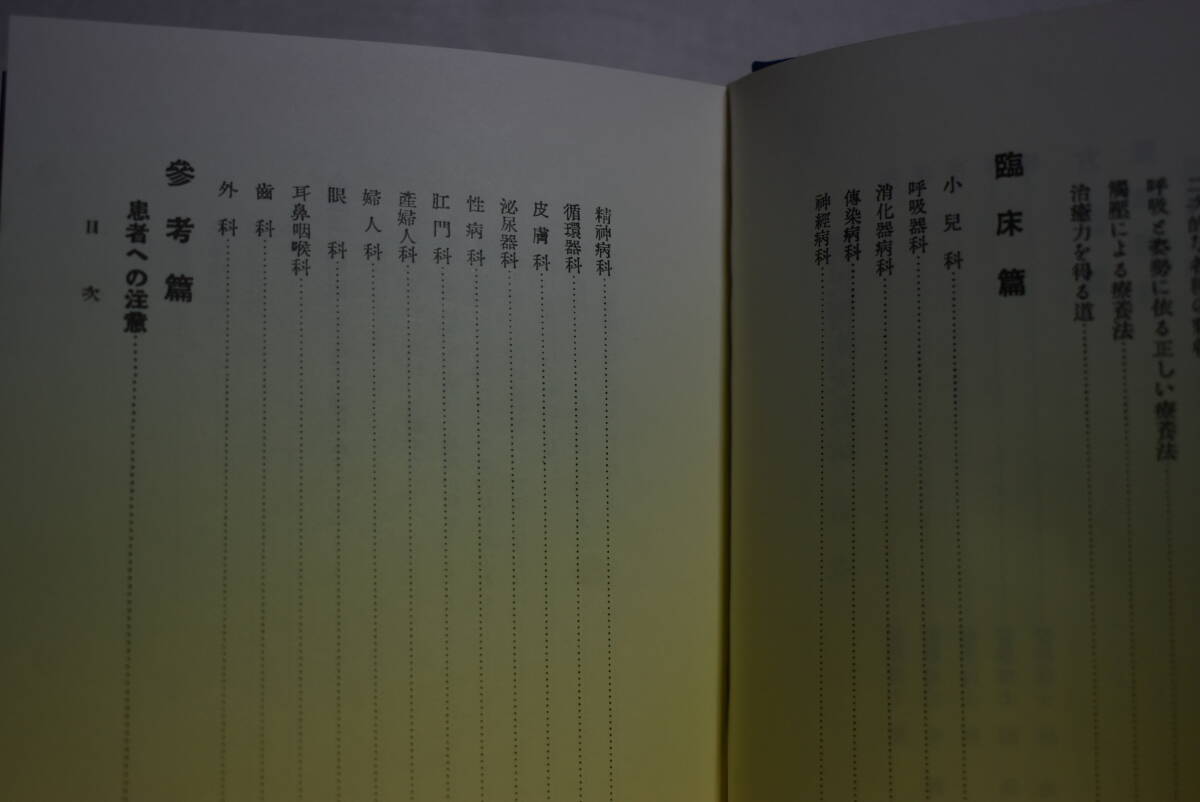 呼吸と姿勢に依る正しい療養法
觸壓による療養法
治癒力を得る道
臨床篇
小兒科
呼吸器科
消化器病科
傳染病科
神經病科
精神病科
循環器科
皮膚科
泌尿器科
性病科
肛門科
產婦人科
婦人科
眼科
耳鼻咽喉科
齒科
外科
參考篇
患者への注意
目次